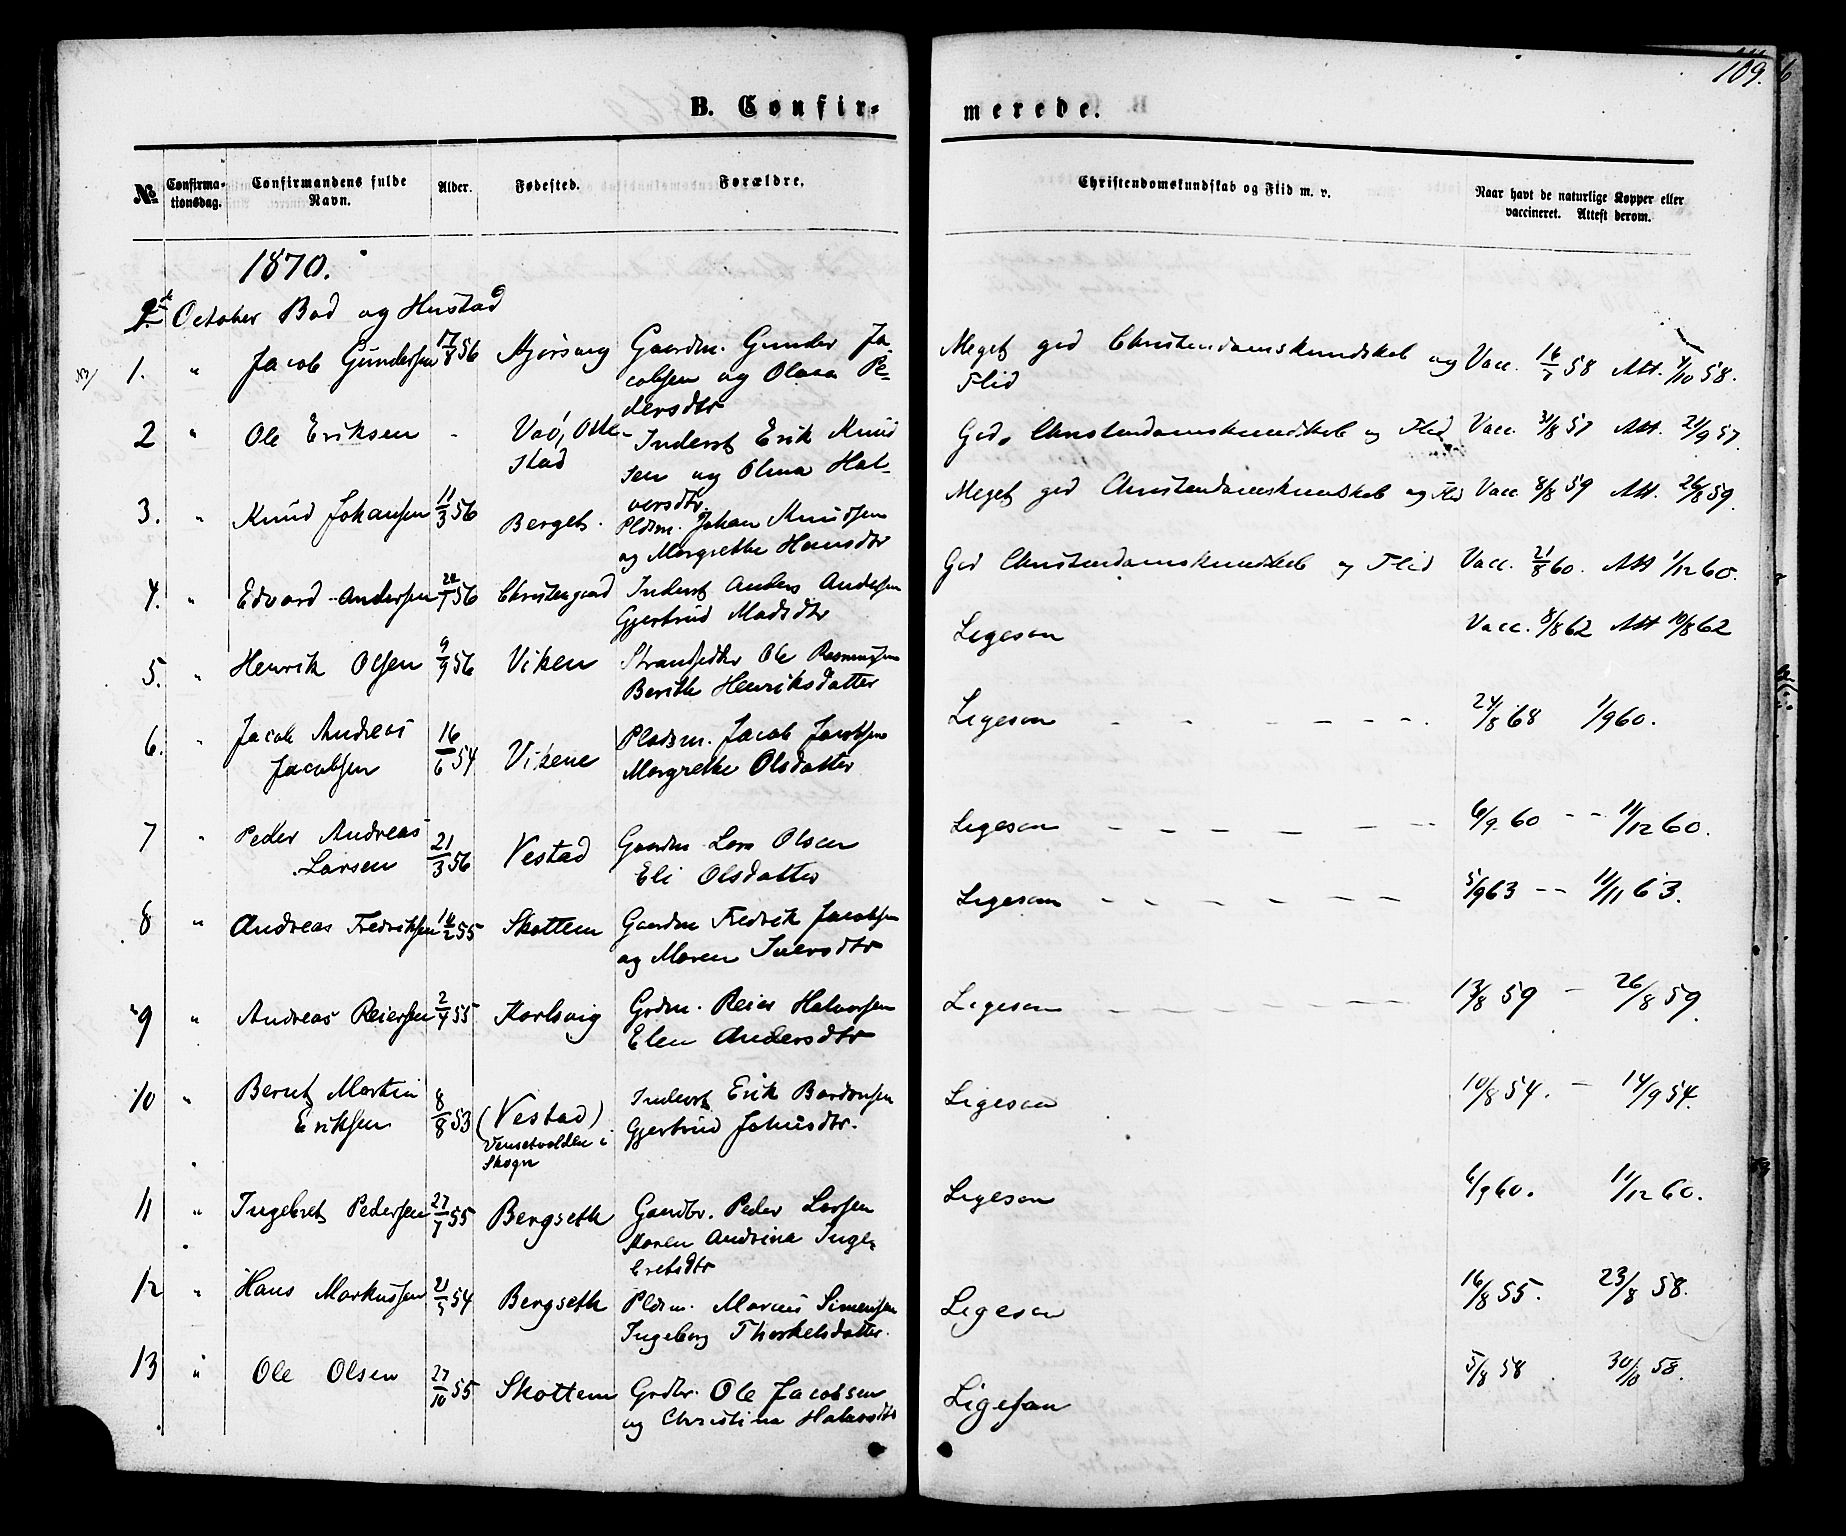 109.
B. Confir-
merede.
№
Confirma-
tionsdag.
Confirmandens fulde
Navn.
Alder.
Fødested.
Forældre.
Christendomskundskab og Flid m. v.
Naar havt de naturlige Kopper eller
vaccineret. Attest derom.
1870.
October Bod og Hustad
1. " Jacob Gundersen 17/8 56 Gaardm. Gunder Ja-
cobsen og Olava Pe-
dersdtr
Meget god Christendomskundskab og
Flid
Vacc. 16/7 58 Att. 4/10 58.
2 " Ole Eriksen - Inderst Erik Knud
sen og Olina Hal-
versdtr
stad
God Christendomskundskab og Flid Vacc. 31/8 57 Att. 21/9 57.
3. " Knud Johansen 11/3 56 Berget. Pldsm. Johan Knudsen
og Margrethe Hansdtr
Meget god Christendomskundskab og Flid Vacc 8/8 59 Att. 26/8 59.
4. " Edvard Andersen 56 Christengaard Inderst Anders Andersen
Gjertrud Madsdtr
God Christendomskundskab og Flid Vacc. 21/8 60. Att 1/12 60.
5. " Henrik Olsen 9/9 56 Viken Strandsidder Ole Rasmussen
Berith Henriksdatter
Ligesaa Vacc. 8/8 62 Att 10/8 62
6. " Jacob Andreas
Jacobsen
16/6 54 Vikene Pladsm. Jacob Jacobsen
Margrethe Olsdatter
Ligesaa - - - - - - 24/8 68 1/9 60.
7 " Peder Andreas
Larsen
21/3 56 Vestad Gaardm Lars Olsen
Eli Olsdatter
Ligesaa - - - - - - - 6/9 60 -- 11/12 60.
8 " Andreas Fredriksen 14/2 55 Skottem Gaardm Fredrik Jacobsen
og Maren Iversdtr
Ligesaa - - - - - - - 5/9 63 -- 11/11 63.
9 " Andreas Reiersen 2/4 55 Karlsvig Grdm. Reier Halvorsen
Elen Andersdtr
Ligesaa - - - - - - - 13/8 59 - 26/8 59.
10 " Bernt Martin
Eriksen
8/8 53 (Vestad)
i
Skogn
Inderst Erik Bardonsen
Gjertrud Johnsdtr.
Ligesaa 10/8 54. - 14/9 54.
11 " Ingebret Pedersen 27/7 55 Bergseth Gaardbr. Peder Larsen
Karen Andrina Inge-
bretsdtr
Ligesaa 6/9 60. 11/12 60.
12 " Hans Markussen 21/5 54 Bergseth Pldsm. Marcus Simensen
Ingeborg Thorkelsdatter.
Ligesaa 16/8 55. 23/8 58.
13 " Ole Olsen 27/10 55 Skottem Grdbr. Ole Jacobsen
og Christina Halvorsdtr
Ligesaa 5/8 58 . 30/10 58.